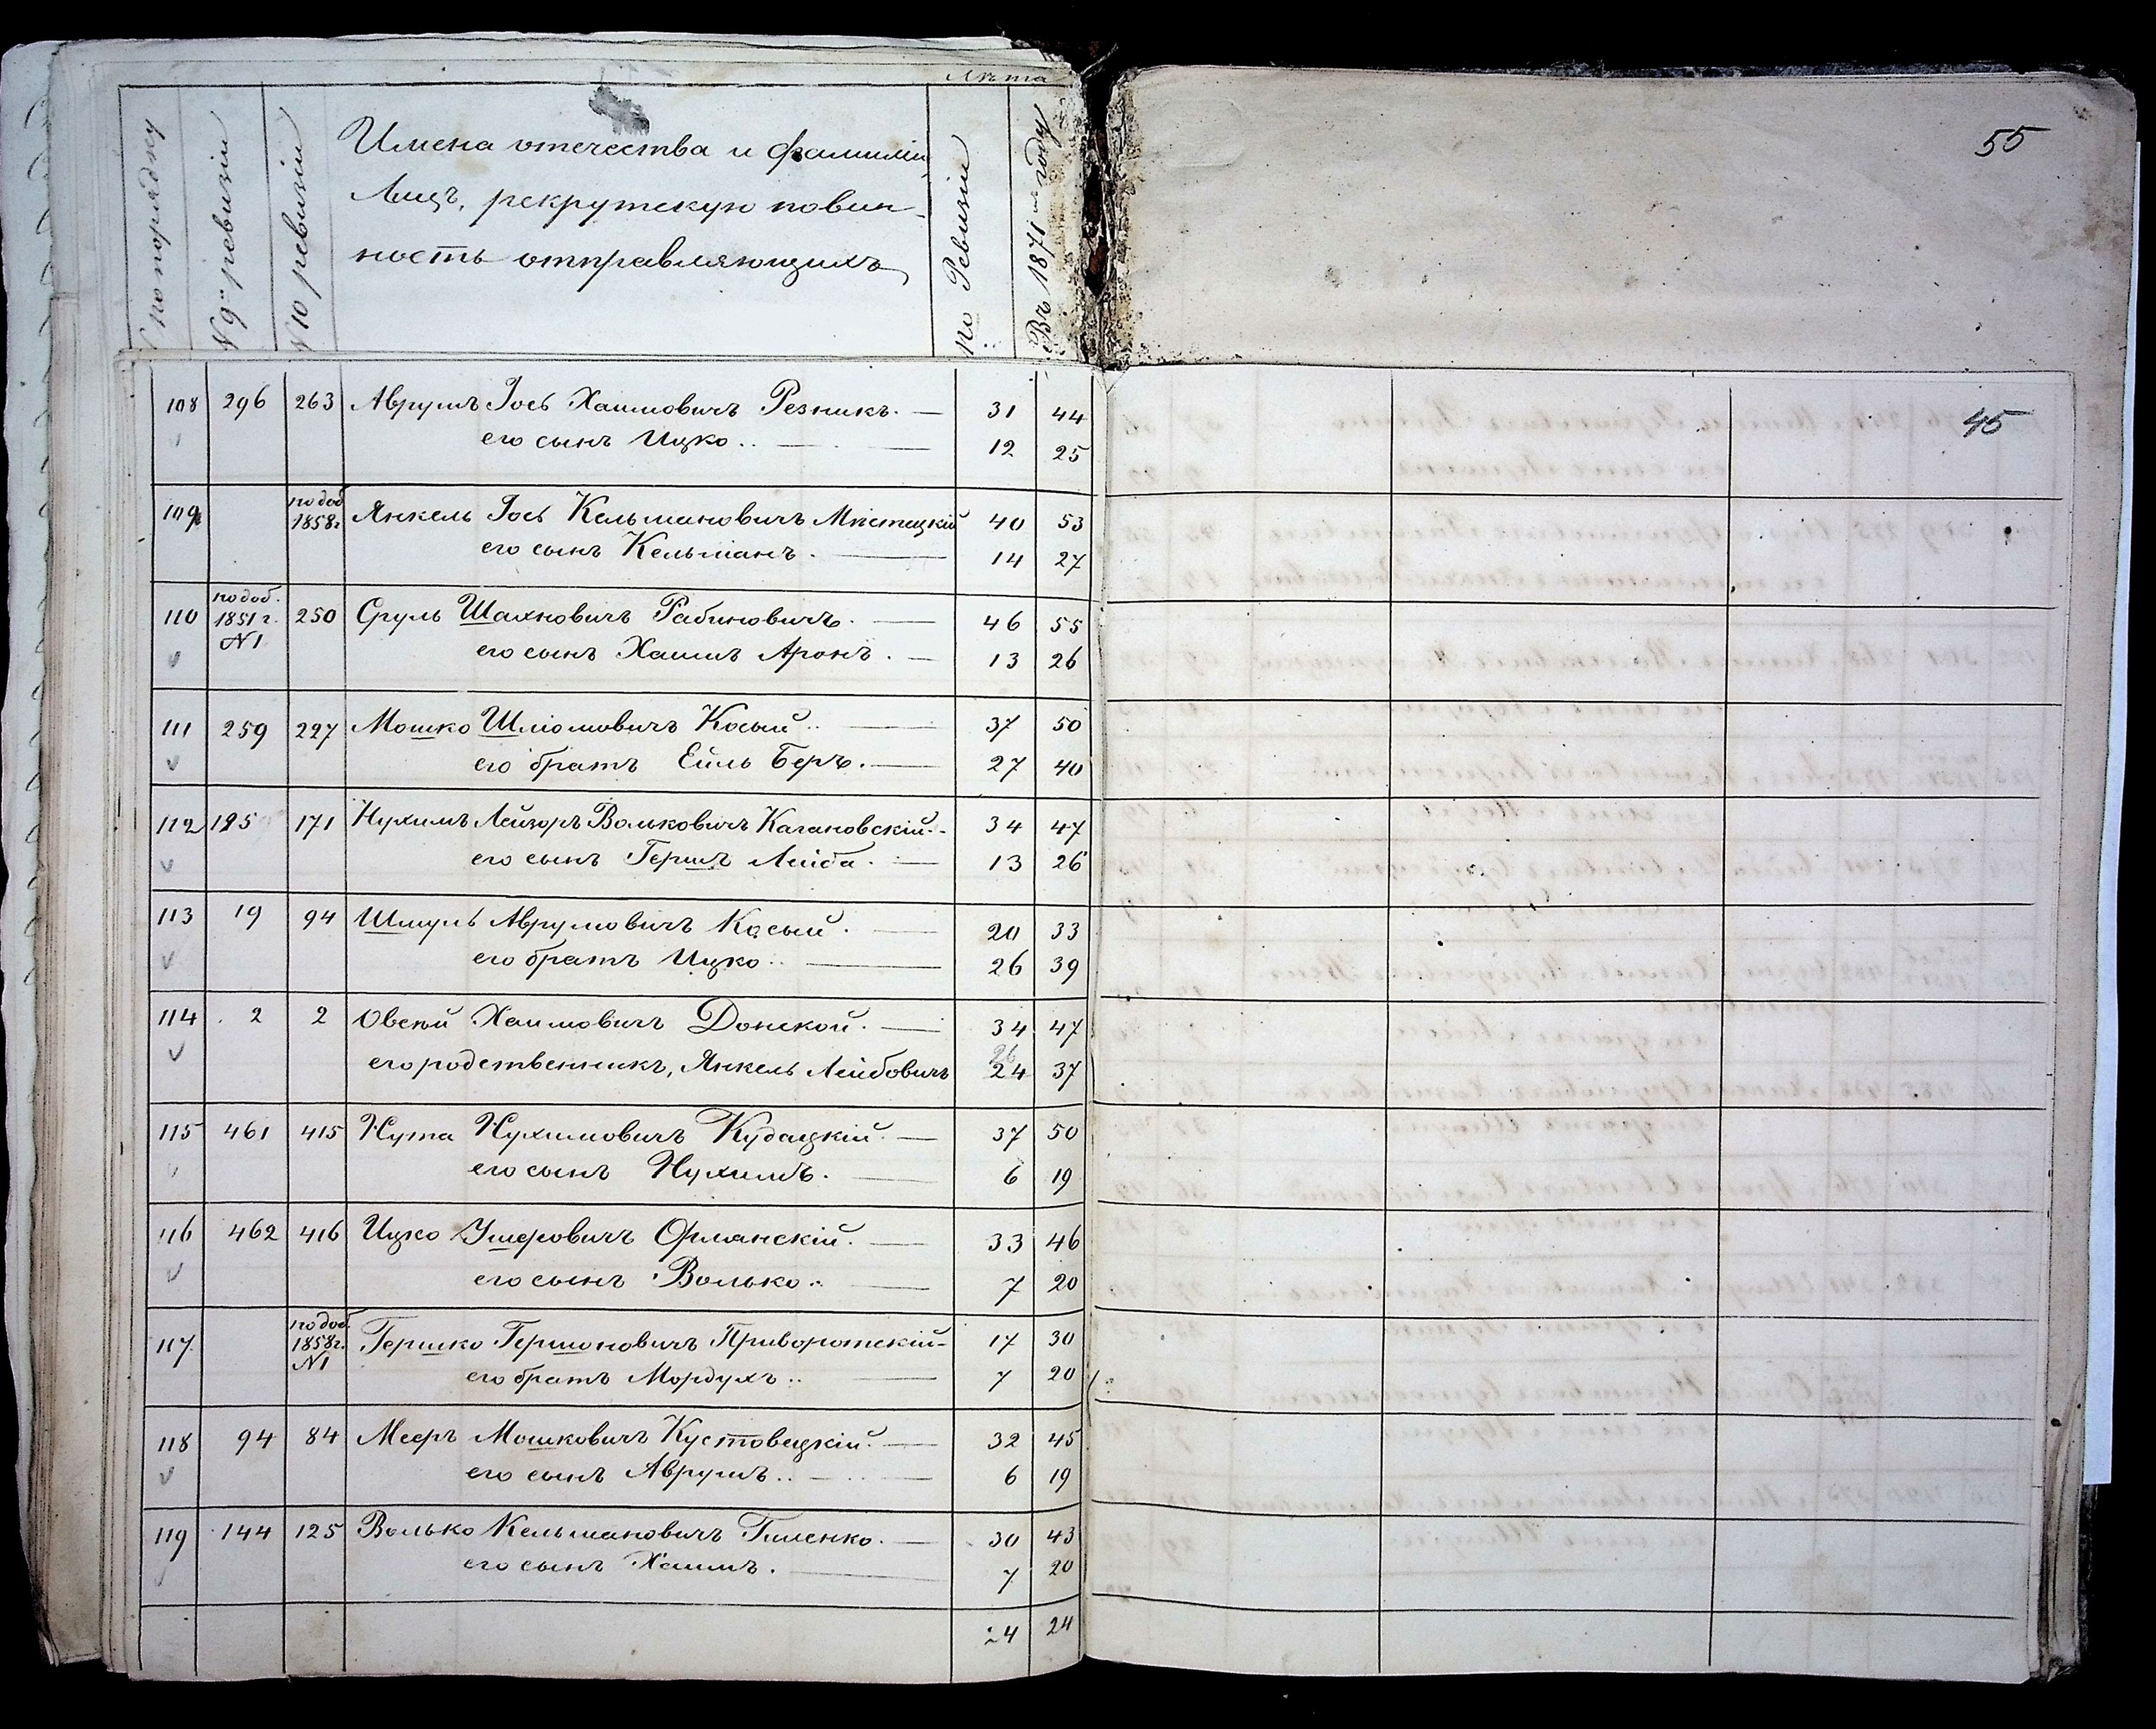 Лѣта
№ по порядку
№ 9й ревизіи
№ 10 ревизіи
Имена отечества и фамиліи
Лицъ, рекрутскую повин-
ность отправляющихъ
по Ревизіи
Въ 1871м году
55
108 296 263 Аврумъ Іось Хаимовичъ Резникъ. — 31 44
его сынъ Ицко.. — 12 25
45
109 по доб 1858г Янкель Іось Кельмановичъ Мѣстецкій 40 53
его сынъ Кельманъ. — 14 27
110 по доб. 1851 г. №1 250 Сруль Шахновичъ Рабиновичъ. — 46 55
его сынъ Хаимъ Аронъ. — 13 26
111 259 227 Мошко Шліомовичъ Косый.. — 37 50
его братъ Ейль Беръ. — 27 40
112 195 171 Нухимъ Лейзоръ Вольковичъ Кагановскій.- 34 47
его сынъ Гершъ Лейба. — 13 26
113 19 94 Шмуль Аврумовичъ Косый. — 20 33
его братъ Ицко.. — 26 39
114 2 2 Овсѣй Хаимовичъ Донской. — 34 47
26
его родственникъ, Янкель Лейбовичъ 24 37
115 461 415 Нута Нухимовичъ Кудацкій. — 37 50
его сынъ Нухимъ. — 6 19
116 462 416 Ицко Ушеровичъ Орланскій. — 33 46
его сынъ Волько.. — 7 20
117. по доб. 1858г. №1 Гершко Гершоновичъ Приворотскій- 17 30
его братъ Мордухъ.. — 7 20
118 94 84 Мееръ Мошковичъ Кустовецкій. — 32 45
его сынъ Аврумъ.. — 6 19
119 144 125 Волько Кельмановичъ Гиленко. — 30 43
его сынъ Хаимъ. — 7 20
24 24